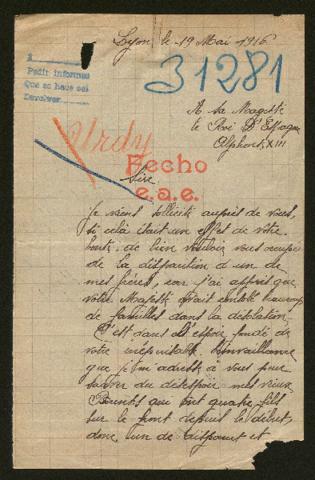 Lyon, le 19 Mai 1916
Pedir informes
Que se hace así
Devolver
31281
A Sa Majesté
le Roi D'Espagne
Alphonse XIII
Urdy
Fecho
e.a.e.
Sire
Je viens sollicité auprès de vous,
si celà était un effet de vôtre
bonté de bien vouloir vous occuper
de la disparition d'un de
mes frères, car j'ai appris que
votre Majesté avait consolé beaucoup
de familles dans la désolation.
C'est dans l'espoir fondé de
votre inépuisable bienveillance
que je m'adresse à vous pour
sauver du désespoir mes vieux
Parents que ont quatre fils
sur le front depuis le début,
dont un de disparut et